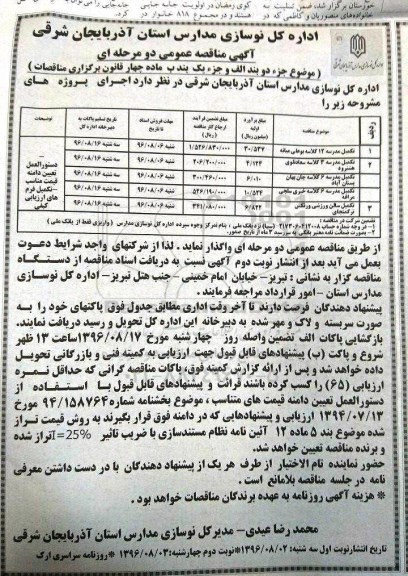 اداره کل نوسازی مدارس استان آذربایجان شرقی
آگهی مناقصه عمومی دو مرحله ای
( موضوع جزء دو بند الف و جزء یک بند ب ماده چهار قانون برگزاری مناقصات )
اداره کل نوسازی مدارس استان آذربایجان شرقی در نظر دارد اجرای پروژه های
مشروحه زیر را
ردیف موضوع مناقصه مبلغ برآورد اولیه (میلیون ریال) مبلغ تضمین فرآیند ارجاع کار مناقصه (ریال) مهلت فروش اسناد تا تاریخ تاریخ تسلیم پاکات به دبیرخانه اداره کل توضیحات
۱ تکمیل مدرسه ۱۲ کلاسه بوعلی میانه ۳۰/۵۳۷ ۱/۵۲۶/۸۳۰/۰۰۰ شنبه ۹۶/۰۸/۰۶ سه شنبه ۹۶/۰۸/۱۶
۲ تکمیل مدرسه ۳ کلاسه سعادتلوی هشترود ۴/۱۲۴ ۲۰۶/۲۰۰/۰۰۰ شنبه ۹۶/۰۸/۰۶ سه شنبه ۹۶/۰۸/۱۶
۳ تکمیل مدرسه ۶ کلاسه خان بستان آباد ۶/۰۱۰ ۳۰۰/۴۶۰/۰۰۰ شنبه ۹۶/۰۸/۰۶ سه شنبه ۹۶/۰۸/۱۶
۴ تکمیل مدرسه ۶ کلاسه خیری مراغه ۱۰/۵۲۴ ۵۲۶/۱۹۰/۰۰۰ شنبه ۹۶/۰۸/۰۶ سه شنبه ۹۶/۰۸/۱۶
۵ تکمیل سالن ورزشی ورنکش ترکمنچای ۶/۸۲۲ ۳۴۱/۰۸۰/۰۰۰ شنبه ۹۶/۰۸/۰۶ سه شنبه ۹۶/۰۸/۱۶
دستورالعمل تعیین دامنه قیمت مناسب -تکمیل فرم های ارزیابی کیفی
تضمین شرکت در مناقصه :
۱- در وجه شماره حساب ۲۱۷۳۰۶۰۲۱۲۰۰۸ (سیبا) نزد بانک ملی ، بنام تمرکز وجوه سپرده اداره کل نوسازی مدارس (واریزی فقط از بانک ملی)
۲- بصورت ضمانت نامه معتبر بانکی به مدت سه ۳ ماه از تاریخ صدور.
از طریق مناقصه عمومی دو مرحله ای واگذار نماید . لذا از شرکتهای واجد شرایط دعوت
بعمل می آید بعد از انتشار نوبت دوم آگهی نسبت به دریافت اسناد مناقصه از دستگاه
مناقصه گزار به نشانی : تبریز- خیابان امام خمینی - جنب هتل تبریز- اداره کل نوسازی
مدارس استان - امور قرارداد مراجعه فرمایند .
پیشنهاد دهندگان فرصت دارند تا آخر وقت اداری مطابق جدول فوق پاکتهای خود را به
صورت سربسته و لاک و مهر شده به دبیرخانه این اداره کل تحویل و رسید دریافت نمایند.
بازگشایی پاکات الف تضمین واصله روز چهارشنبه مورخ ۱۳۹۶/۰۸/۱۷ ساعت ۱۳ ظهر
شروع و پاکت (ب) پیشنهادهای قابل قبول جهت ارزیابی به کمیته فنی و بازرگانی تحویل
داده خواهد شد و پس از ارائه گزارش کمیته فوق، پاکات مناقصه گرانی که حداقل نمره
ارزیابی (۶۵) را کسب کرده باشند قرائت و پیشنهادهای قابل قبول با استفاده از
دستورالعمل تعیین دامنه قیمت های متناسب ، موضوع بخشنامه شماره ۹۴/۱۵۸۷۶۴ مورخ
۱۳۹۴/۰۷/۱۳ ارزیابی و پیشنهادهایی که در دامنه فوق قرار بگیرند به روش قیمت تراز
شده موضوع بند ۵ ماده ۱۲ آئین نامه نظام مستندسازی با ضریب تاثیر %25=i تراز شده
و برنده مناقصه تعیین خواهد شد.
حضور نماینده تام الاختیار از طرف هر یک از پیشنهاد دهندگان با در دست داشتن معرفی
نامه در جلسه مناقصه بلامانع است .
* هزینه آگهی روزنامه به عهده برندگان مناقصات خواهد بود .
محمد رضا عیدی - مدیر کل نوسازی مدارس استان آذربایجان شرقی
تاریخ انتشار نوبت اول سه شنبه: ۱۳۹۶/۰۸/۰۲ * نوبت دوم چهارشنبه: ۱۳۹۶/۰۸/۰۳ * روزنامه سراسری ارک